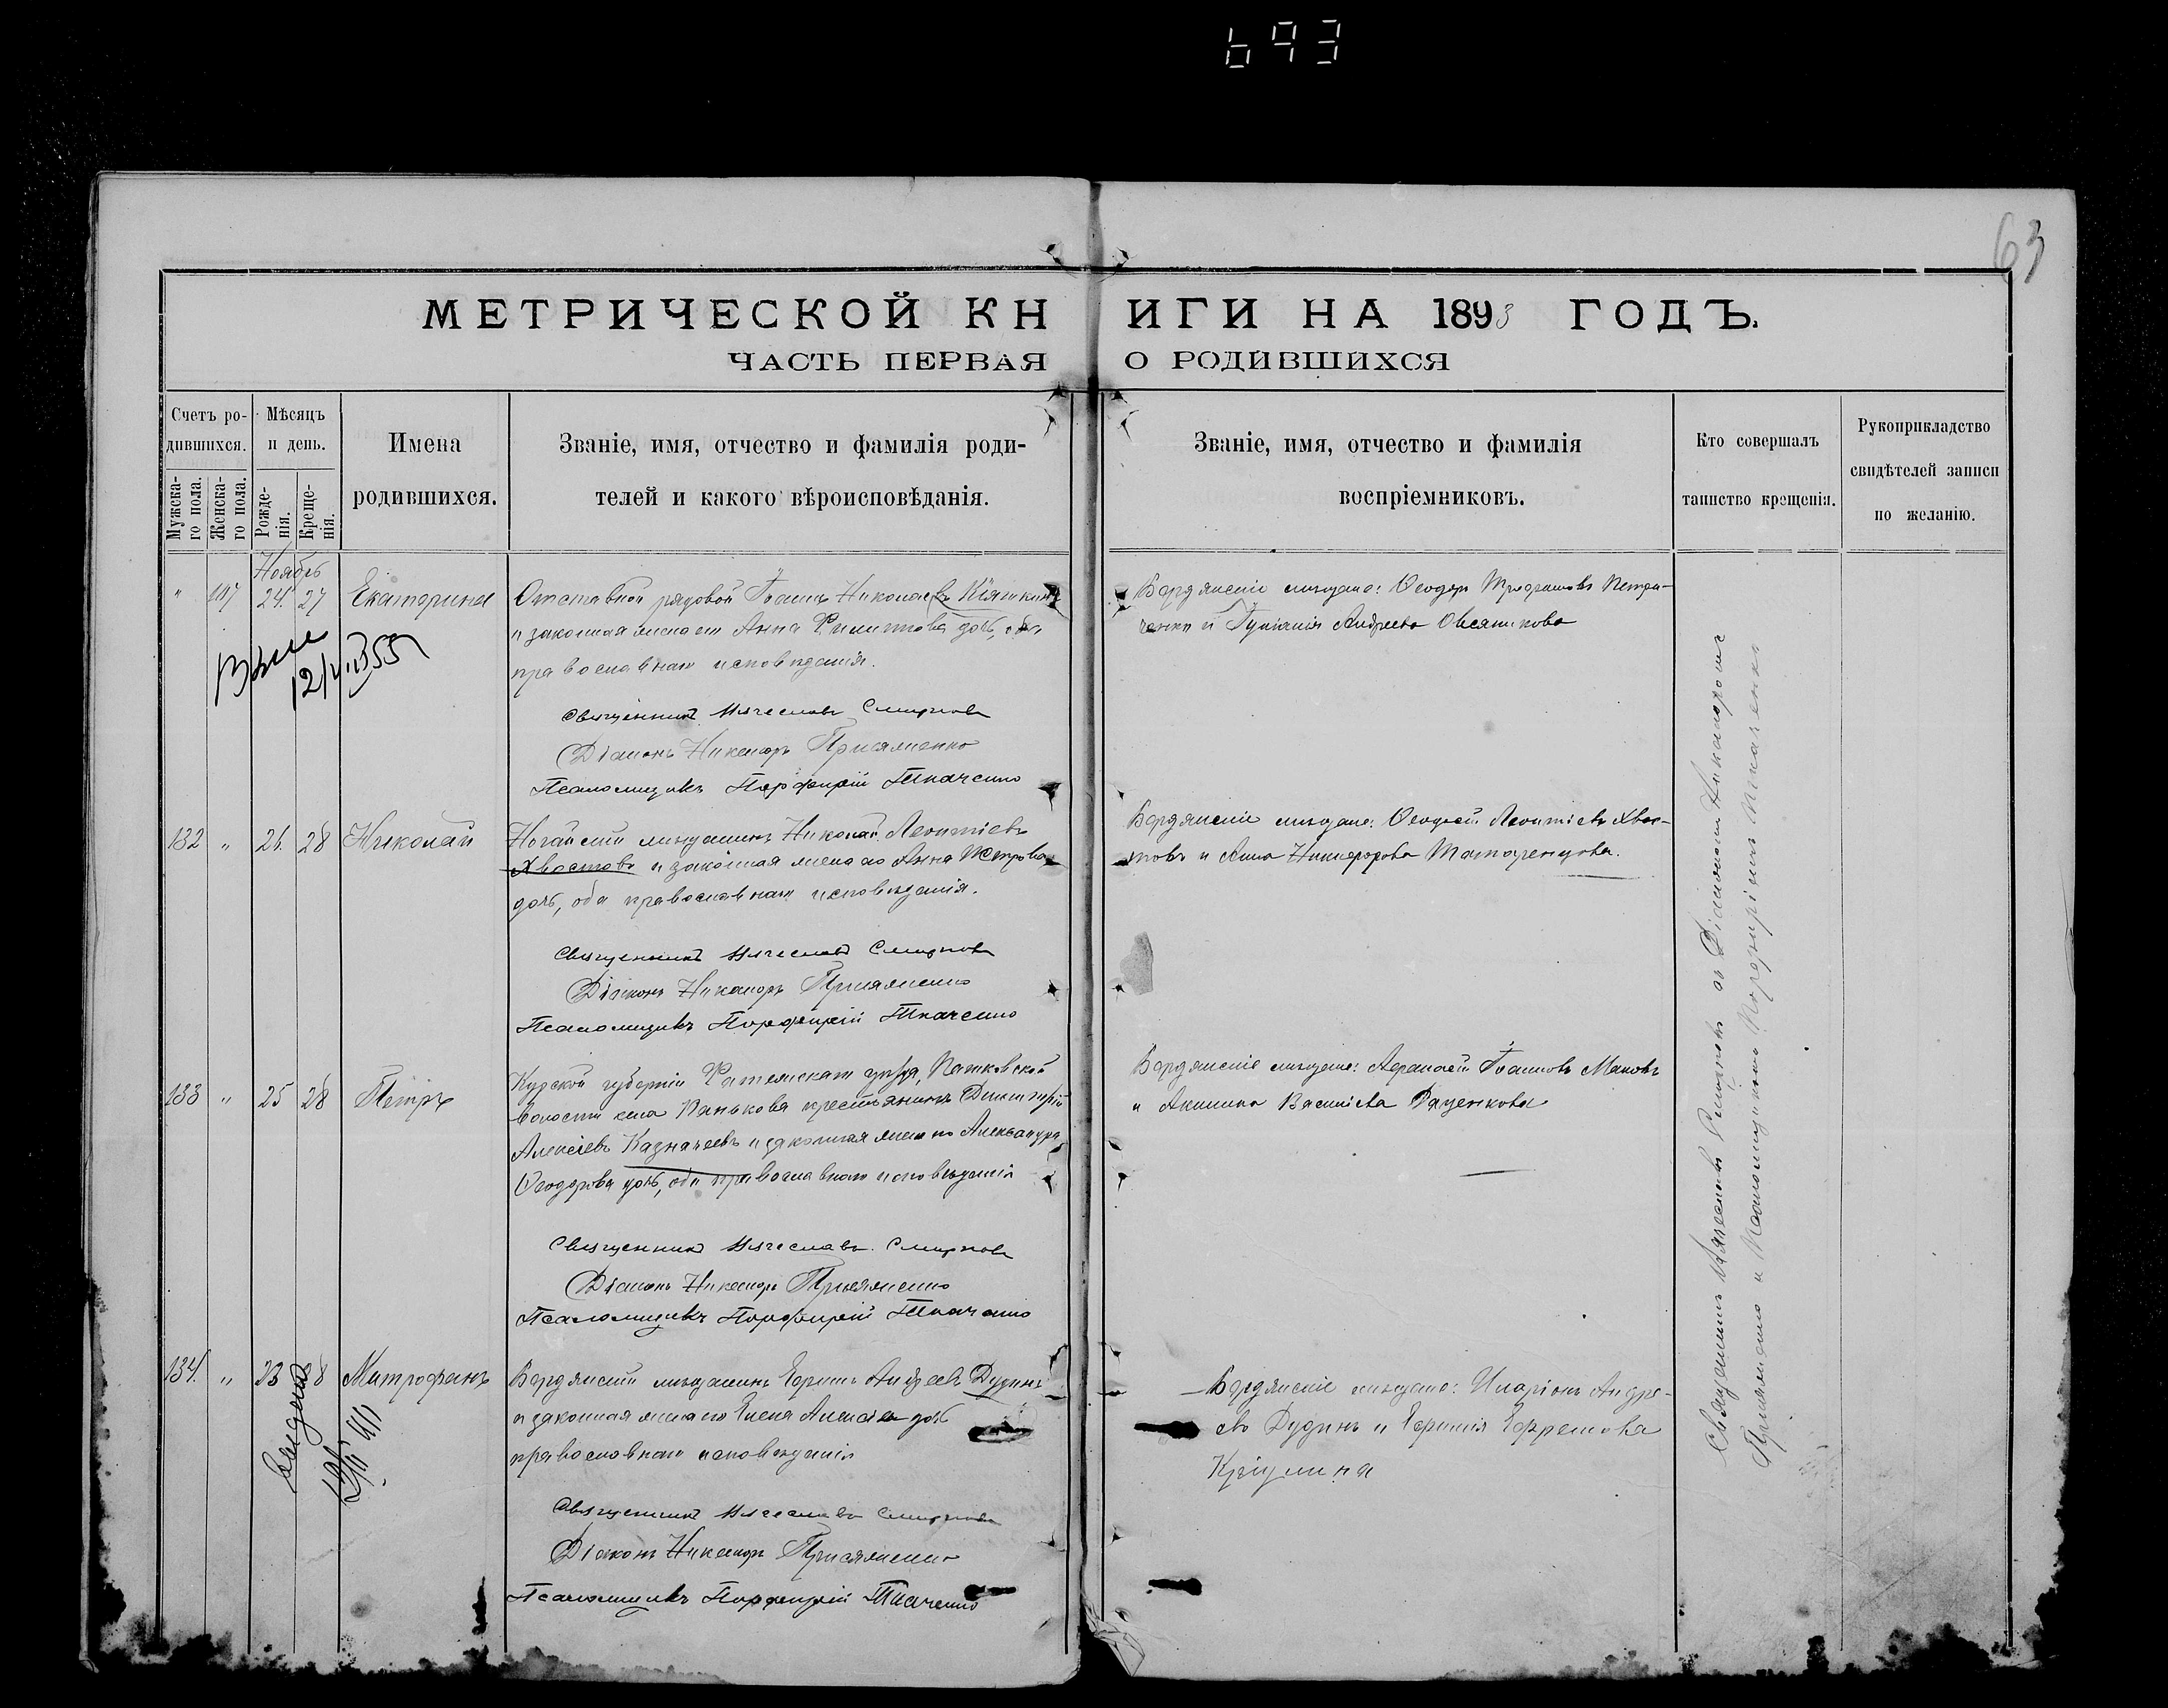 693
63
МЕТРИЧЕСКОЙ КНИГИ НА 1893 ГОДЪ.
ЧАСТЬ ПЕРВАЯ О РОДИВШИХСЯ
Счетъ ро-
дившихся.
Мужска-
го пола.
Женска-
го пола.
Мѣсяцъ
и день.
Рожде-
нія.
Креще-
нія.
Имена
родившихся.
Званіе, имя, отчество и фамилія роди-
телей и какого вѣроисповѣданія.
Званіе, имя, отчество и фамилія
воспріемниковъ.
Кто совершалъ
таинство крещенія.
Рукоприкладство
свидѣтелей записи
по желанію.
Ноябрь
" 117 24. 27 Екатерина
Отставной рядовой Іоаннъ Николаевъ Кіяшкинъ
и законная жена его Анна Филиппова дочь, оба
православнаго исповѣданія.
Священникъ Вячеславъ Смирновъ
Діаконъ Никаноръ Присяженко
Псаломщикъ Порфирій Ткаченко
Бердянскіе мѣщане: Ѳеодоръ Трофимовъ Петри-
ченко и Андреева Овсяникова
132 " 21. 28 Николай
Ногайскій мѣщанинъ Николай Леонтіевъ
Хвостовъ и законная жена его Анна Петрова
дочь, оба православнаго исповѣданія.
Священникъ Вячеславъ Смирновъ
Діаконъ Никаноръ Присяженко
Псаломщикъ Порфирій Ткаченко
Бердянскіе мѣщане: Леонтіевъ Хвос-
товъ и Анна Никифорова
133 " 25 28 Петръ
Курской губерніи Фатежскаго уѣзда,
волости села Панькова крестьянинъ Димитрій
Алексіевъ Казначеевъ и законная жена его Александра
Ѳеодорова дочь, оба православнаго исповѣданія
Священникъ Вячеславъ Смирновъ
Діаконъ Никаноръ Присяженко
Псаломщикъ Порфирій Ткаченко
Бердянскіе мѣщане: Аѳанасій Іоанновъ Маковъ
и Акилина Василіева
134. " 23 28 Митрофанъ
Бердянскій мѣщанинъ Андреевъ Дудинъ
и законная жена его Елена Алексіева дочь
православнаго исповѣданія
Священникъ Вячеславъ Смирновъ
Діаконъ Никаноръ Присяженко
Псаломщикъ Порфирій Ткаченко
Бердянскіе мѣщане: Иларіонъ Андре-
евъ Дудинъ и Ефремова
Священникъ Вячеславъ Смирновъ съ Діакономъ Никаноромъ
Присяженко и Псаломщикомъ Порфиріемъ Ткаченко